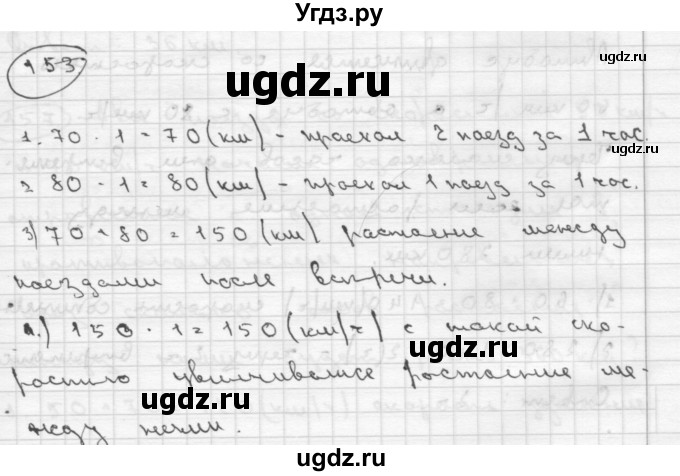 Угдз.ру
153
ugdz.ru
1. 70 · 1 = 70 (км) - проехал 2 поезд за 1 час.
2 80 · 1 = 80 (км) - проехал 1 поезд за 1 час.
ugdz.ru
3) 70 + 80 = 150 (км) растояние между
поездами после встречи.
ugdz.ru
4.) 150 · 1 = 150 (км/ч) с такой ско-
ростью увиличивалисе растояние ме-
ugdz.ru
жду ними.
ugdz.ru